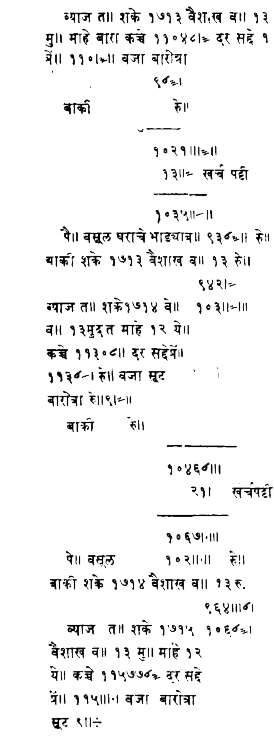 व्याज त॥ शके १७१३ वैशाख व॥ १३
मु॥ माहे बारा कच्चे ११०४८।= दर सद्दे १
प्रें॥ ११०।=॥ वजा बारोत्रा
९७=।
बाकी रु॥
१०२१॥।=॥
१३॥= खर्च पट्टी
१०३५॥-॥
पै॥ वसूल घराचे भाड्याब॥ ९३७=॥ रु॥
बाकी शके १७१३ वैशाख व॥ १३ रु॥
९४२।=
व्याज त॥ शके १७१४ वै॥ १०३॥=॥
व॥ १३ मुदत माहे १२ ये॥
कच्चे ११३०८॥ दर सद्देप्रें॥
११३७-। रु॥ वजा सूट
बारोत्रा रु॥९।=॥
बाकी रु॥
१०४६७॥।
२१। खर्चपट्टी
१०६७॥।
पै॥ वसूल १०२॥।॥ रु॥
बाकी शके १७१४ वैशाख व॥ १३ रु.
९६४॥।७।
व्याज त॥ शके १७१५ १०६७=।
वैशाख व॥ १३ मु॥ माहे १२
ये॥ कच्चे ११५७७७= दर सद्दे
प्रें॥ ११५॥।॥ वजा बारोत्रा
सूट ९॥÷